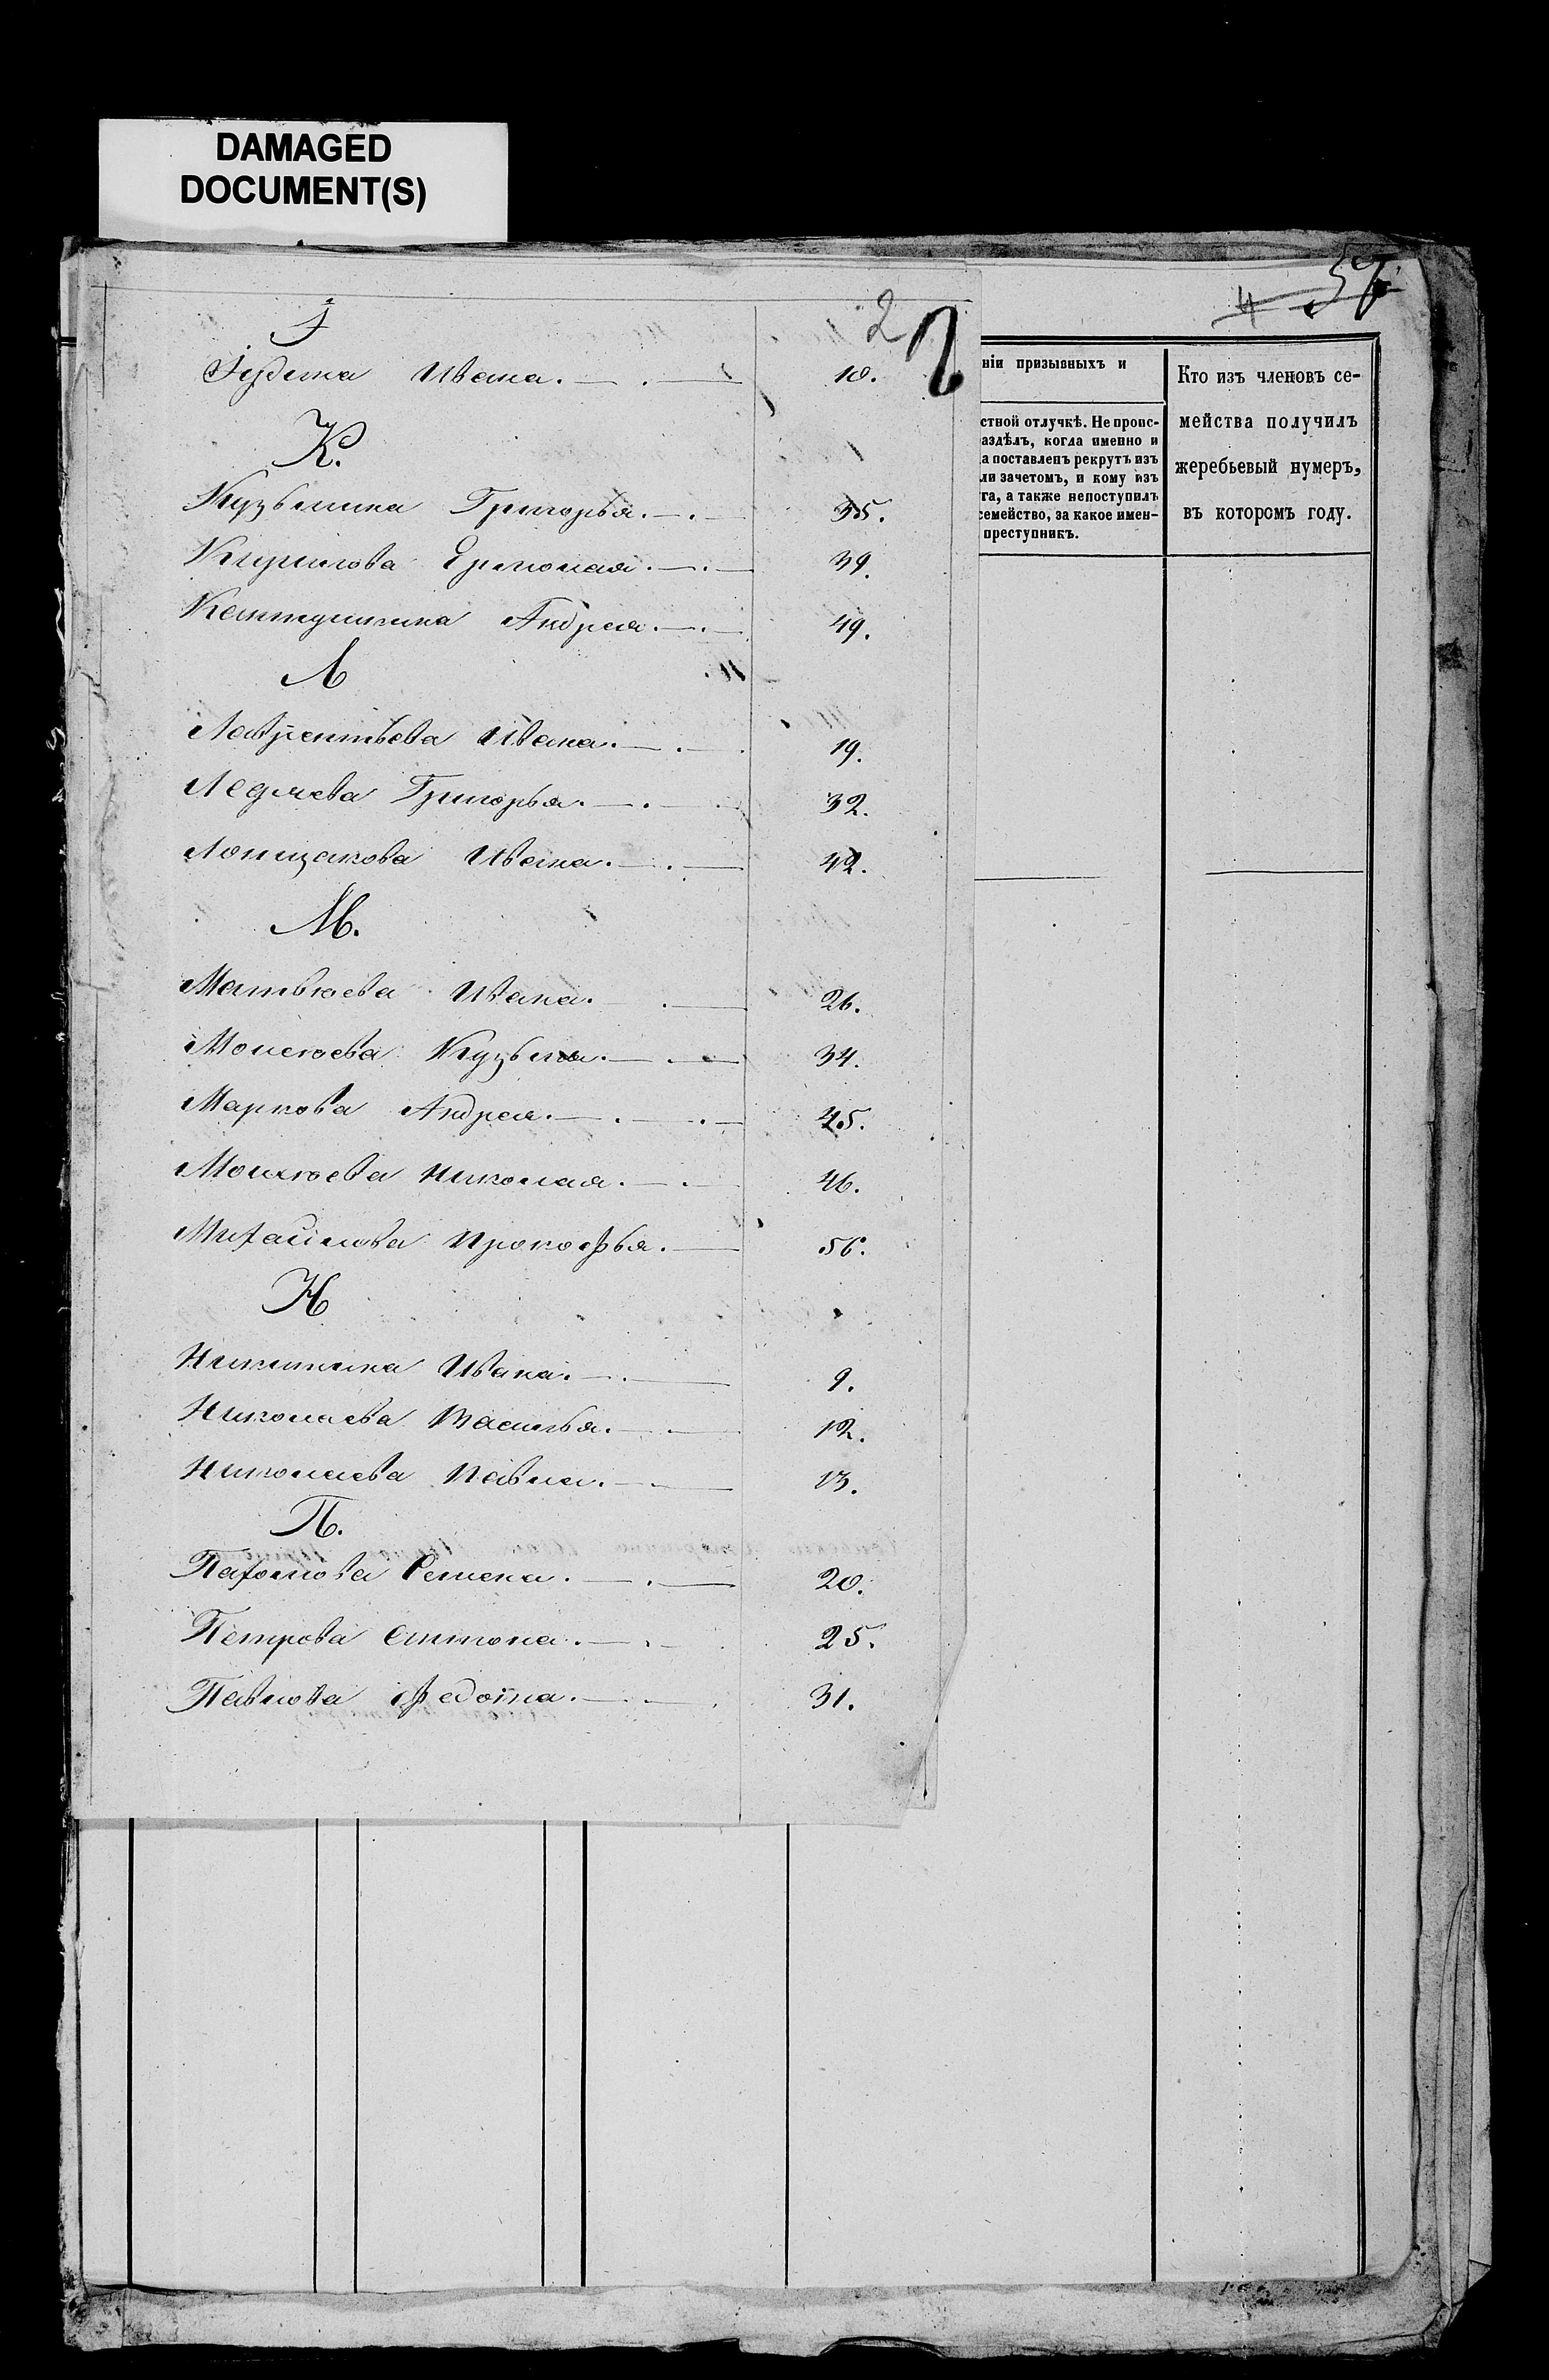 DAMAGED
DOCUMENT(S)
57
4
2
І
Іудина Ивана. 10.
К.
Кузьмина Григорья. 35.
Кирилова Ермолая. 39.
Андрея. 49.
Л
Лаврентьева Ивана. 19.
Григорья. 32.
Лопщакова Ивана. 42.
М.
Матвѣева Ивана. 26.
Моисѣева Кузьма. 34.
Маркова Андрея. 45.
Моисѣева Николая. 46.
Михайлова Прокофья. 56.
Н
Никитина Ивана. 9.
Николаева Василья. 12.
Николаева Павла. 13.
П.
Пахомова Семена. 20.
Петрова Антона. 25.
Павлова Федота. 31.
ніи призывныхъ и
стной отлучкѣ. Не проис-
аздѣлъ, когда именно и
а поставленъ рекрутъ изъ
ли зачетомъ, и кому изъ
та, а также непоступилъ
семейство, за какое имен-
преступникъ.
Кто изъ членовъ се-
мейства получилъ
жеребьевый нумеръ,
въ которомъ году.